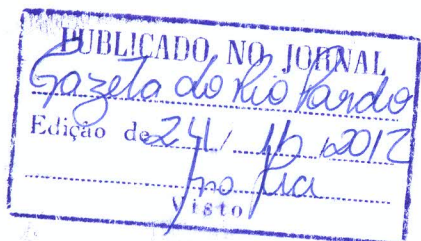 PUBLICADO NO JORNAL
Gazeta do Rio Pardo
Edição de 24/ 11/ 2012
Visto